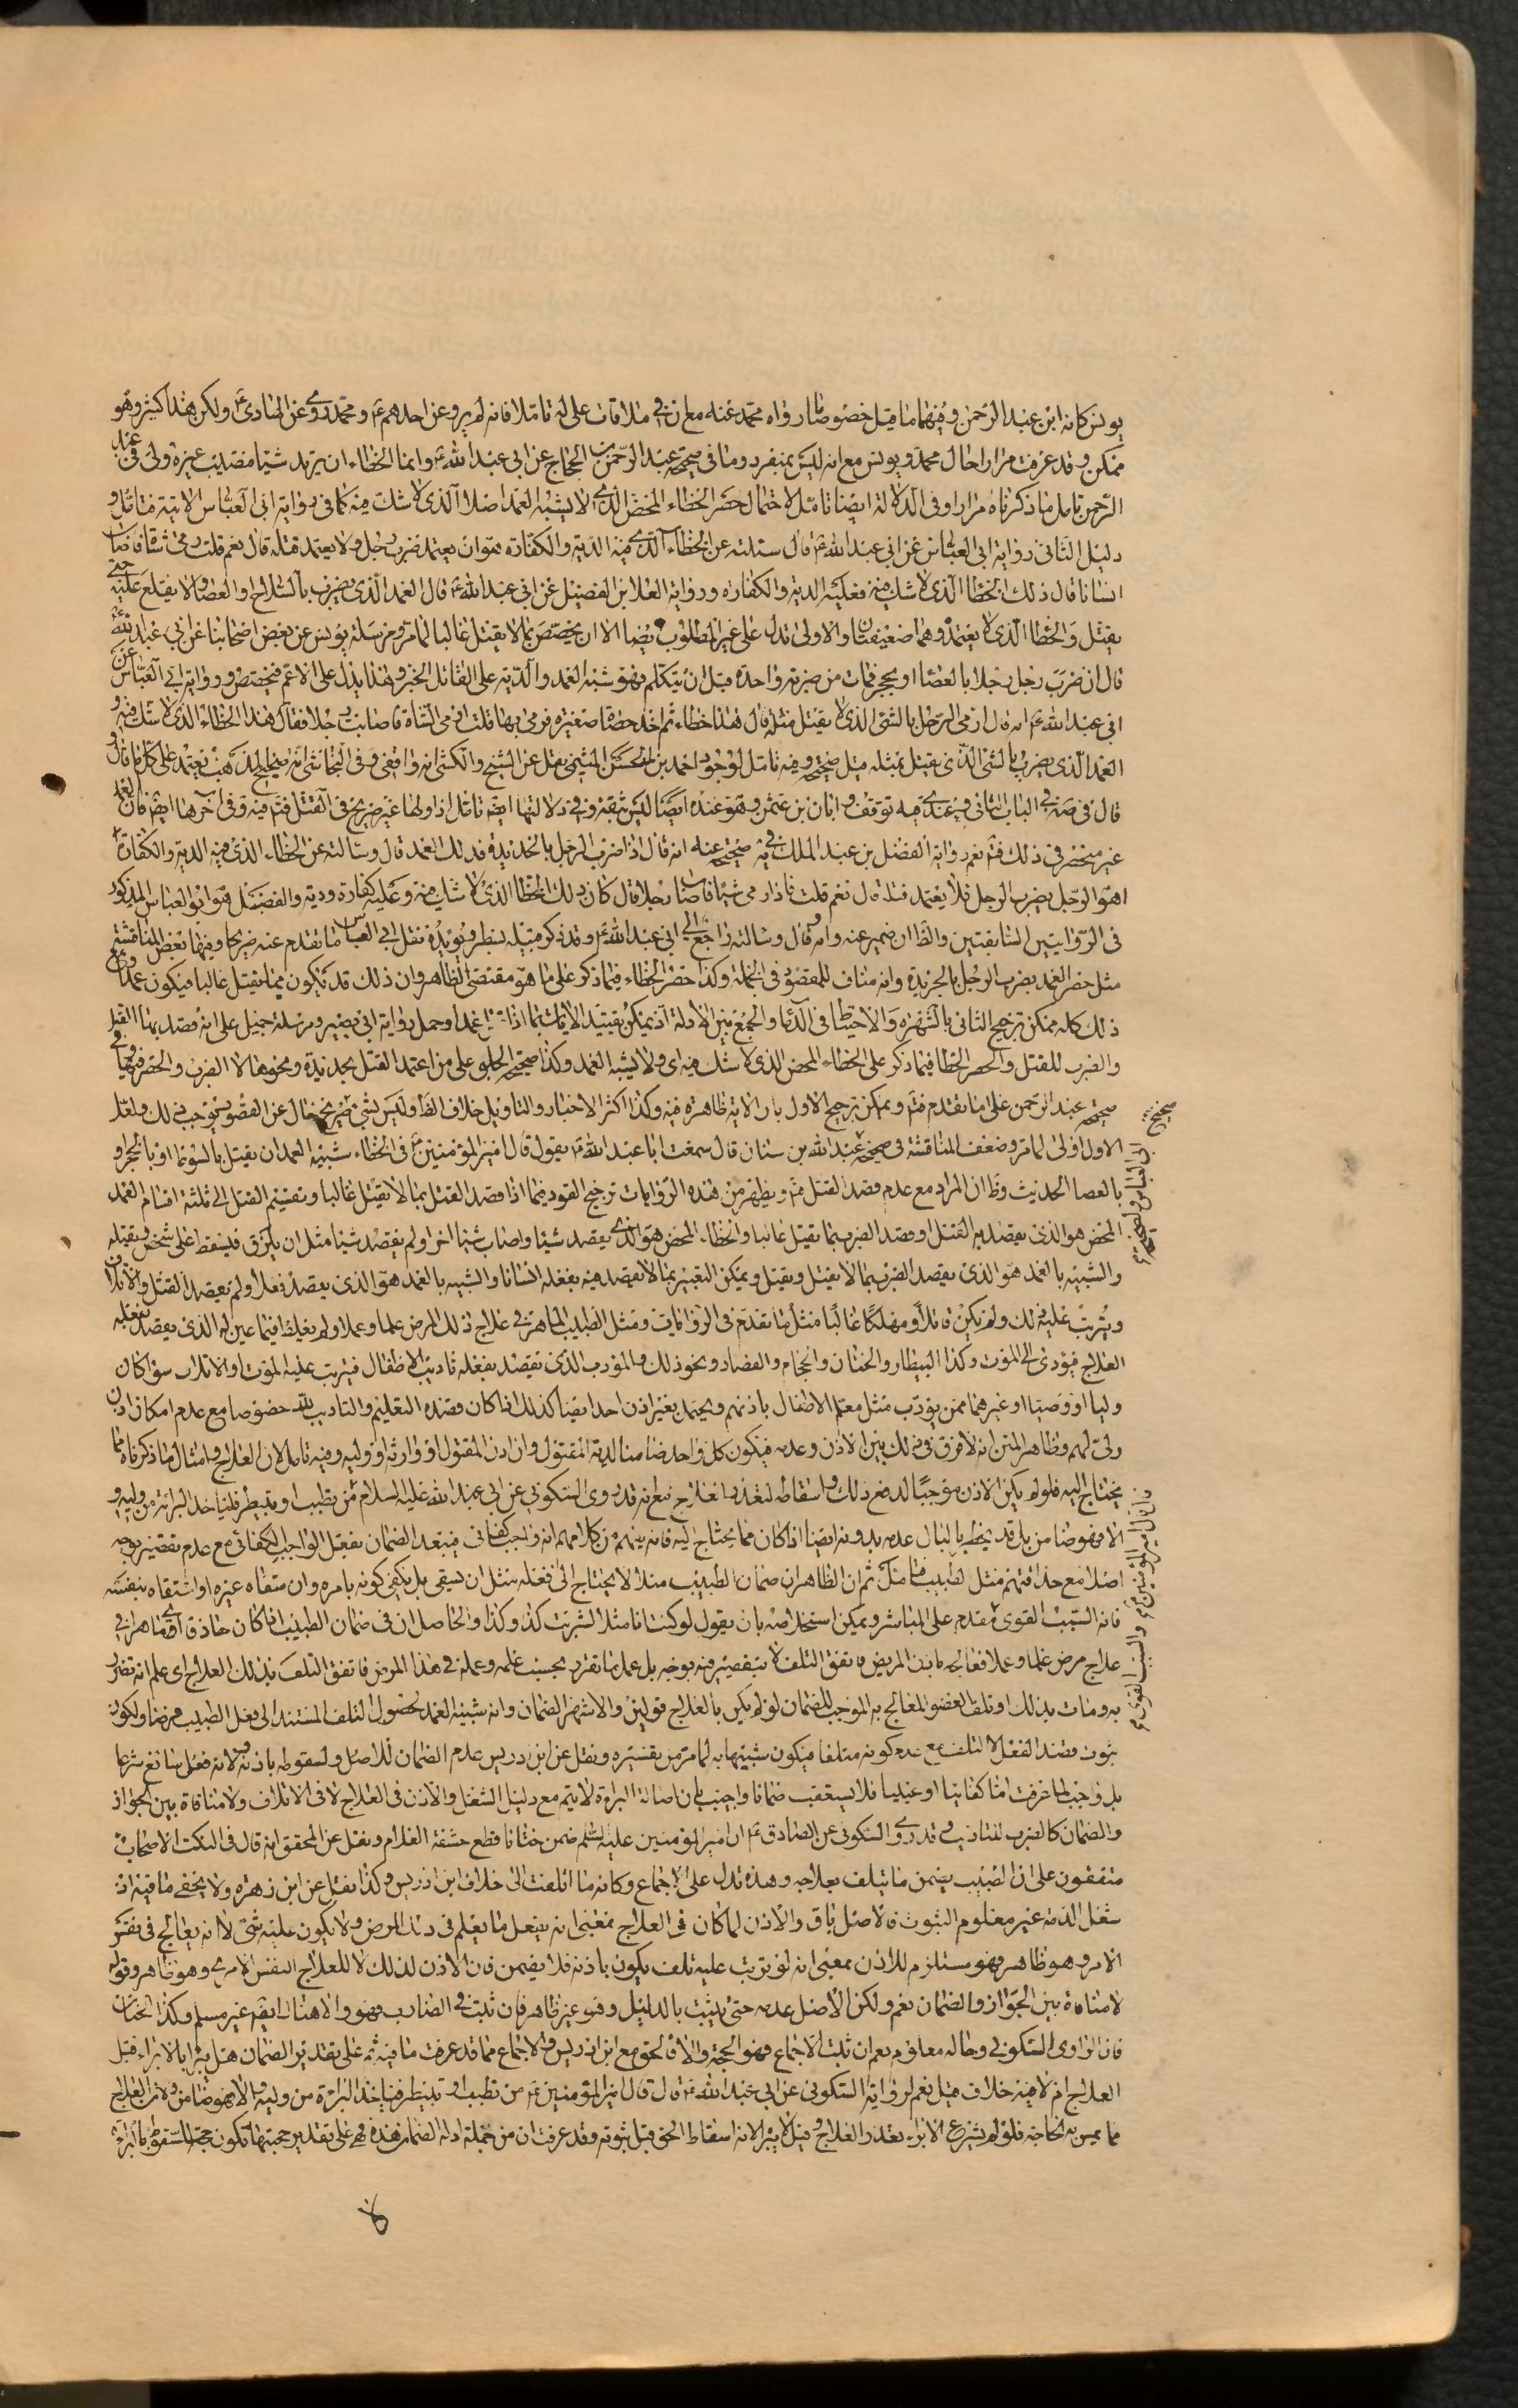 يونس كانه ابن عبد الرحمن وفيهما ما قيل خصوصا ما رواه محمد عنه مع ان في ملاقات على له تاملا فانه لم يرو عن احدهم ع ومحمد روى عن الهادى ع ولكن هذا كثير وهو
ممكن وقد عرفت مرارا حال محمد ويونس مع انه ليس بمنفرد وما فى صحيحة عبد الرحمن بن الحجاج عن ابى عبد الله ع وانما الخطاء ان يريد شيئا فيصيب غيره ولى فى عبد
الرحمن تامل ما ذكرناه مرارا وفى الدلالة ايضا تامل لاحتمال حصر الخطاء المحض الذى لا يشبه العمد اصلا الذى لا شك فيه كما فى رواية ابى العباس الاتية فتامل و
دليل الثانى رواية ابى العباس عن ابى عبد الله ع قال سئلته عن الخطاء الذى فيه الدية والكفارة هو ان يعتمد ضرب رجل ولا يعتمد قتله قال نعم قلت رمى شاة فاصاب
انسانا قال ذلك الخطا الذى لا شك فيه فعليه الدية والكفارة ورواية العلا بن الفضيل عن ابى عبد الله ع قال العمد الذى يضرب بالسلاح والعصا لا يقلع عنه حتى
يقتل والخطا الذى لا يعتمده وهما ضعيفتان والاولى تدل على غير المطلوب ايضا الا ان يخصص بما لا يقتل غالبا لما مر ومرسلة يونس عن بعض اصحابنا عن ابى عبد الله ع
قال ان ضرب رجل رجلا بالعصا او بحجر فمات من ضربة واحدة قبل ان يتكلم فهو شبه العمد والدية على القاتل الخبر وهذا يدل على الاعم فيخصص ورواية ابى العباس عن
ابى عبد الله ع انه قال ارمى الرجل بالشى الذى لا يقتل مثله قال هذا خطاء ثم اخذ حصاة صغيرة فرمى بها قلت ارمى الشاة فاصابت رجلا فقال هذا الخطاء الذى لا شك فيه و
العمد الذى يضرب بالشى الذى يقتل بمثله قيل صحيحة وفيه تامل لوجود احمد بن الحسن الميثمى نقل عن الشيخ والكشى انه واقفى وفى النجاشى انه صحيح المذهب يعتمد على كل ما قال و
قال فى صه فى الباب الثانى وعندى فيه توقف وابان بن عثمن وهو عنده ايضا ليس بثقة وفى دلالتها ايضا تامل اذ اولها غير صريح فى القتل فتم فيه وفى آخرها ايضا فان العمد
غير منحصر فى ذلك فتم نعم رواية الفضل بن عبد الملك فى يه صحيحة عنه انه قال اذا ضرب الرجل بالحديدة فذلك العمد قال وسالته عن الخطاء الذى فيه الدية والكفارة
اهو الرجل يضرب الرجل فلا يعتمد قتله قال نعم قلت فاذا رمى شيئا فاصاب رجلا قال كان ذلك الخطا الذى لا شك فيه وعليه كفارة ودية والفضل هو ابو العباس المذكور
فى الروايتين السابقتين والظا ان ضمير عنه وانه قال وسالته راجع الى ابى عبد الله ع وقد ذكر قبيله بسطر ويؤيده نقل ابى العباس ما تقدم عنه صريحا وفيهما بعض المناقشة
مثل حصر العمد بضرب الرجل بالحديدة وانه مناف للمقصود فى الجملة وكذا حصر الخطاء فيما ذكر على ما هو مقتضى الظاهر وان ذلك قد يكون مما يقتل غالبا فيكون عمدا ومع
ذلك كله ممكن ترجيح الثانى بالشهرة والاحتياط فى الدماء والجمع بين الادلة اذ يمكن تقييد الايات بما اذا عمدا وحمل رواية ابى بصير ومرسلة جميل على انه قصد بهما القتل
والضرب للقتل والحصر الخطا فيما ذكر على الخطاء المحض الذى لا شك فيه اى ولا يشبه العمد وكذا صحيحة الحلبى على من اعتمد القتل بحديدة ونحوها لا الضرب والحصر فيها وفى
صحيحة عبد الرحمن على ما تقدم فتم ويمكن ترجيح الاول بان الاية ظاهرة فيه وكذا اكثر الاخبار والتاويل خلاف الظا وليس بشى صريح خال عن القصور يوجب ذلك ولعل
الاول اولى لما مر وضعف المناقشة فى صحيحة عبد الله بن سنان قال سمعت ابا عبد الله ع يقول قال امير المؤمنين ع فى الخطاء شبيه العمد ان يقتل بالسوط او بالحجر و
بالعصا الحديث وظ ان المراد مع عدم قصد القتل فتم ويظهر من هذه الروايات ترجيح القود فيما اذا قصد القتل بما لا يقتل غالبا وتقسيم القتل الى ثلثة اقسام العمد
المحض هو الذى يقصد به القتل او قصد الضرب بما يقتل غالبا والخطاء المحض هو الذى يقصد شيئا واصاب شيئا اخر او لم يقصد شيئا مثل ان يزلق فيسقط على شخص ويقتله
والشبيه بالعمد هو الذى يقصد الضرب بما لا يقتل ويقتل ويمكن التعبير بما لا يقصد فيه بفعله انسانا والشبيه بالعمد هو الذى يقصد فعلا ولم يقصد القتل والاتلاف
ويترتب عليه ذلك ولم يكن قاتلا ومهلكا غالبا مثل ما تقدم فى الروايات ومثل الطبيب الماهر فى علاج ذلك المرض علما وعملا ولم يغلط فيما عين له الذى يقصد بفعله
العلاج فيؤدى الى الموت وكذا البيطار والختان والحجام والفصاد ونحو ذلك والمؤدب الذى يقصد بفعله تاديب الاطفال فيترتب عليه الموت او الاتلاف سوا كان
وليا او وصيا او غيرهما ممن يؤدب مثل معلم الاطفال باذنهم ويحتمل بغير اذن احد ايضا كذلك اذا كان قصده التعليم والتاديب لله خصوصا مع عدم امكان اذن
ولى لهم وظاهر المتن انه لا فرق فى ذلك بين الاذن وعدمه فيكون كل واحد ضامنا لدية المقتول وان اذن المقتول او وارثه او وليه وفيه تامل لان العلاج وامثال ما ذكرناه مما
يحتاج اليه فلو لم يكن الاذن موجبا لدفع ذلك واسقاطه لتعذر العلاج نعم انه قد روى السكونى عن ابى عبد الله عليه السلام من تطبب او تبيطر فلياخذ البراءة من وليه و
الا فهو ضامن بل قد يخطر بالبال عدمه بدونه ايضا اذا كان مما يحتاج اليه فانه يفهم من كلامهم انه واجب كفائى فيبعد الضمان بفعل الواجب الكفائى مع عدم تقصير بوجه
اصلا مع حذاقتهم مثل الطبيب فتامل ثم ان الظاهر ان ضمان الطبيب مثلا لا يحتاج الى فعله مثل ان يسقى بل يكفى كونه بامره وان سقاه غيره او استقاه بنفسه
فانه السبب القوى مقدم على المباشر ويمكن استخلاصه بان يقول لو كنت انا مثلا لشربت كذا وكذا والحاصل ان فى ضمان الطبيب اذا كان حاذقا اى ماهرا فى
علاج مرض علما وعملا فعالجه باذن المريض فاتفق التلف لا بتقصير منه بوجه بل عمل ما تقرر بحسب علمه وعمله فى هذا المرض فاتفق التلف بذلك العلاج اى علم انه تضرر
به ومات بذلك او تلف العضو المعالج به الموجب للضمان لو لم يكن بالعلاج قولين والاشهر الضمان وانه شبيه العمد لحصول التلف المستند الى فعل الطبيب فرضا ولكون
بثبوت قصد الفعل لا التلف مع عدم كونه متلفا فيكون شبيها به لما مر من تفسيره ونقل عن ابن ادريس عدم الضمان للاصل ولسقوطه باذنه ولانه فعل سائغ شرعا
بل واجب لما عرفت اما كفائيا او عينيا فلا يستعقب ضمانا واجيب بان اصالة البراءة لا يتم مع دليل الشغل والاذن فى العلاج لا فى الاتلاف ولا منافاة بين الجواز
والضمان كالضرب للتاديب وقد روى السكونى عن الصادق ع ان امير المؤمنين عليه السلم ضمن ختانا قطع حشفة الغلام ونقل عن المحقق انه قال فى النكت الاصحاب
متفقون على ان الطبيب يضمن ما يتلف بعلاجه وهذه تدل على الاجماع وكانه ما التفت الى خلاف ابن ادريس وكذا نقل عن ابن زهره ولا يخفى ما فيه اذ
شغل الذمة غير معلوم الثبوت فالاصل باق والاذن لما كان فى العلاج بمعنى انه يفعل ما يعلم فى دفع المرض ولا يكون عليه شى لا انه يعالج فى نفس
الامر وهو ظاهر فهو مستلزم للاذن بمعنى انه لو ترتب عليه تلف يكون باذنه فلا يضمن فان الاذن لذلك لا للعلاج النفس الامرى وهو ظاهر وقوله
لا منافاة بين الجواز والضمان نعم ولكن الاصل عدمه حتى يثبت بالدليل وهو غير ظاهر فان ثبت فى الضارب فهو والا هناك ايضا غير مسلم وكذا الختان
فان الراوى السكونى وحاله معلوم نعم ان ثبت الاجماع فهو الحجة والا فالحق مع ابن ادريس والاجماع مما قد عرفت ما فيه ثم على تقدير الضمان هل يبرأ بالابراء قبل
العلاج ام لا فيه خلاف قيل نعم لرواية السكونى عن ابى عبد الله ع قال قال امير المؤمنين ع من تطبب او تبيطر فلياخذ البراءة من وليه والا فهو ضامن ولان العلاج
مما يمس به الحاجة فلو لم يشرع الابراء تعذر العلاج وقيل لا يبرأ لانه اسقاط الحق قبل ثبوته وقد عرفت ان من جملة ادلة الضمان هذه فهى على تقدير حجيتها تكون حجة للسقوط بالبراءة